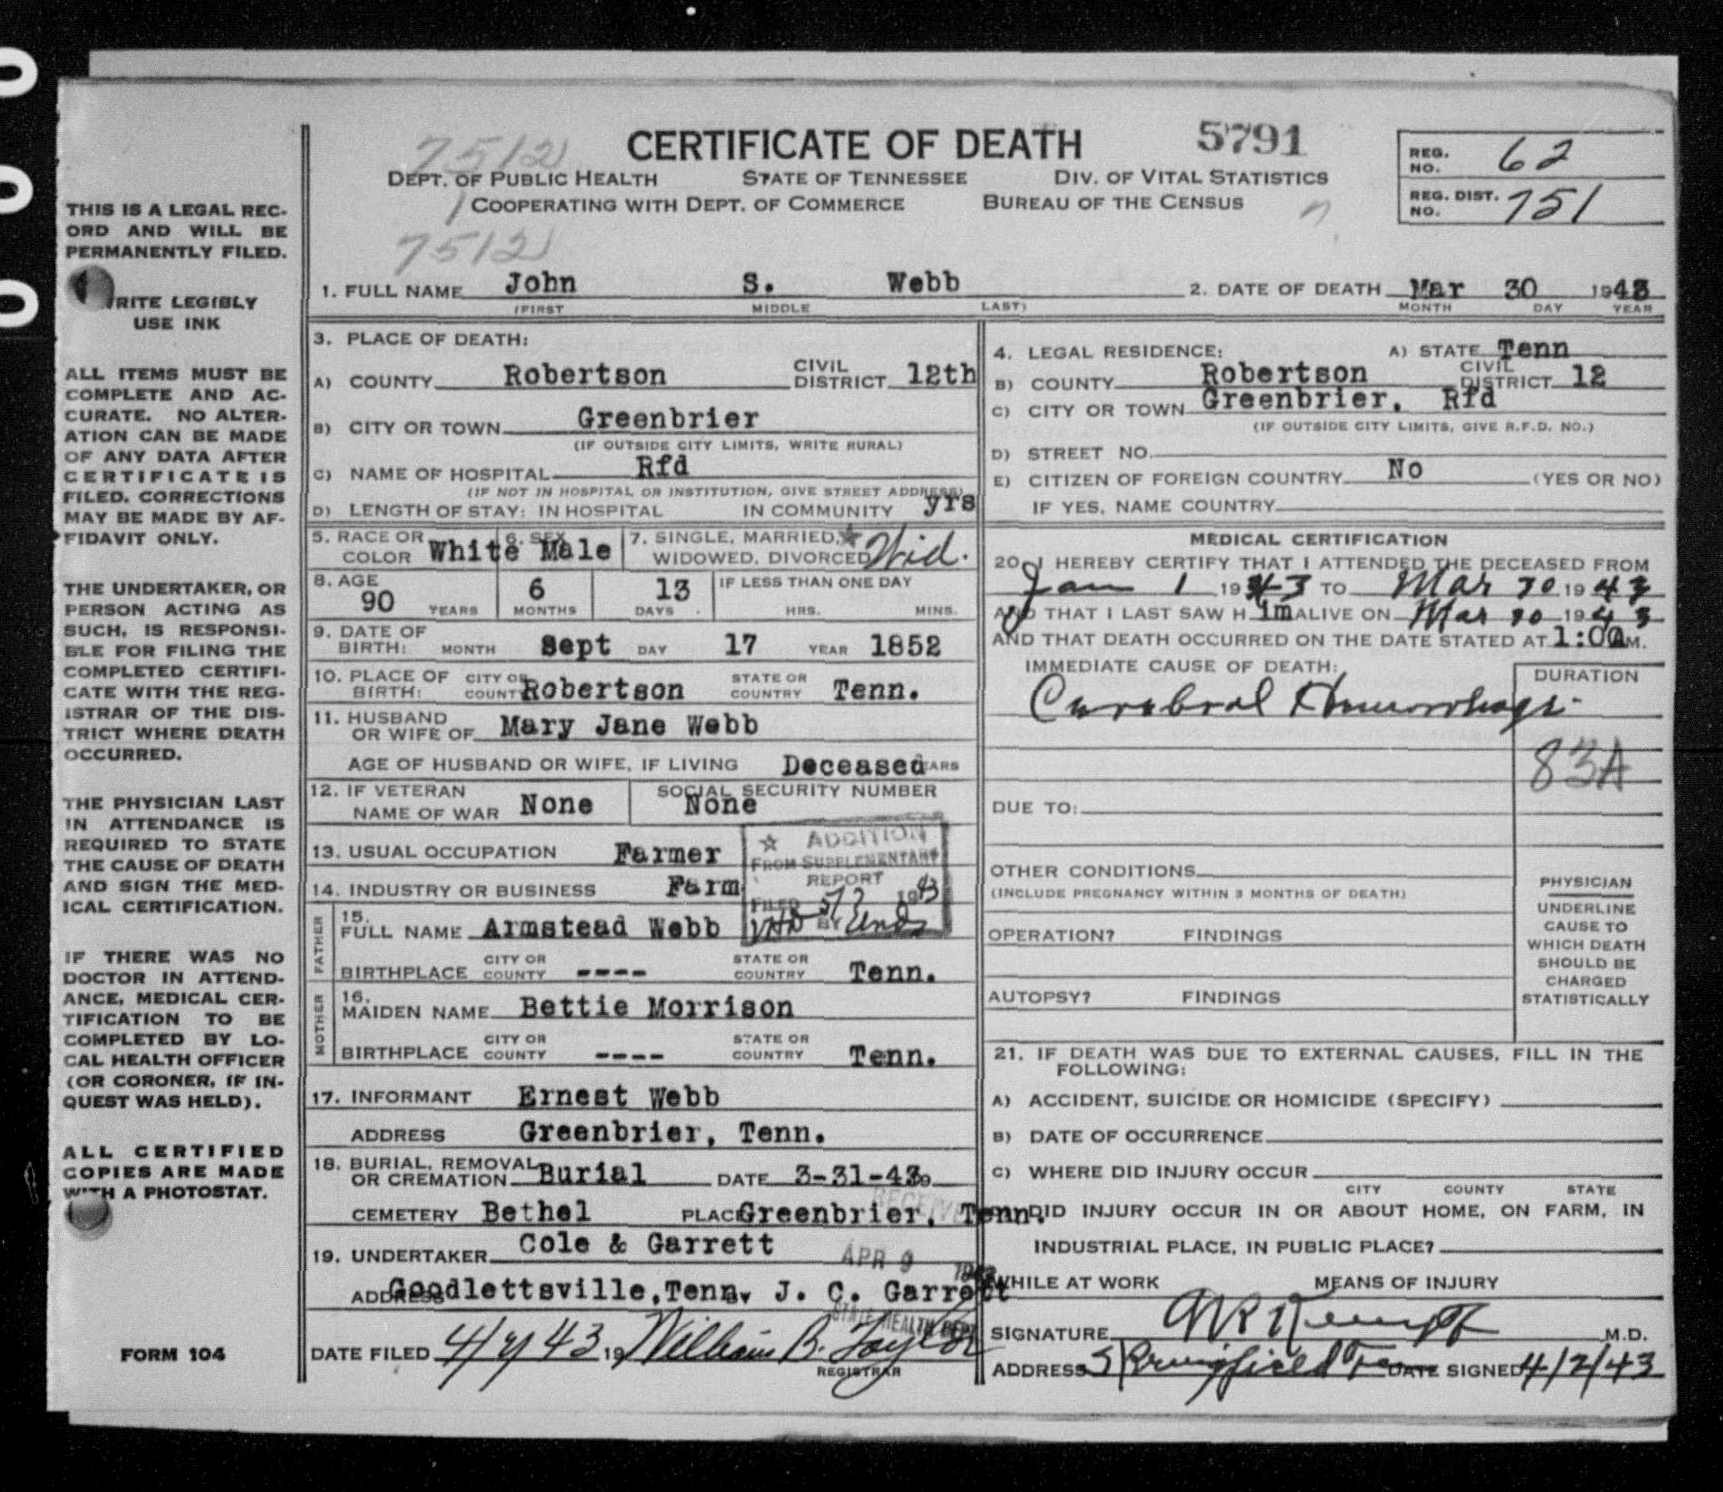 CERTIFICATE OF DEATH 5791
7512
DEPT. OF PUBLIC HEALTH STATE OF TENNESSEE DIV. OF VITAL STATISTICS
COOPERATING WITH DEPT. OF COMMERCE BUREAU OF THE CENSUS
7512
REG. NO. 62
REG. DIST. NO. 751
THIS IS A LEGAL REC-
ORD AND WILL BE
PERMANENTLY FILED.
WRITE LEGIBLY
USE INK
ALL ITEMS MUST BE
COMPLETE AND AC-
CURATE. NO ALTER-
ATION CAN BE MADE
OF ANY DATA AFTER
CERTIFICATE IS
FILED. CORRECTIONS
MAY BE MADE BY AF-
FIDAVIT ONLY.
THE UNDERTAKER, OR
PERSON ACTING AS
SUCH, IS RESPONSI-
BLE FOR FILING THE
COMPLETED CERTIFI-
CATE WITH THE REG-
ISTRAR OF THE DIS-
TRICT WHERE DEATH
OCCURRED.
THE PHYSICIAN LAST
IN ATTENDANCE IS
REQUIRED TO STATE
THE CAUSE OF DEATH
AND SIGN THE MED-
ICAL CERTIFICATION.
IF THERE WAS NO
DOCTOR IN ATTEND-
ANCE, MEDICAL CER-
TIFICATION TO BE
COMPLETED BY LO-
CAL HEALTH OFFICER
(OR CORONER, IF IN-
QUEST WAS HELD).
ALL CERTIFIED
COPIES ARE MADE
WITH A PHOTOSTAT.
FORM 104
1. FULL NAME John S. Webb
(FIRST MIDDLE LAST)
2. DATE OF DEATH Mar 30 1943
MONTH DAY YEAR
3. PLACE OF DEATH:
A) COUNTY Robertson CIVIL DISTRICT 12th
B) CITY OR TOWN Greenbrier
(IF OUTSIDE CITY LIMITS, WRITE RURAL)
C) NAME OF HOSPITAL Rfd
(IF NOT IN HOSPITAL OR INSTITUTION, GIVE STREET ADDRESS)
D) LENGTH OF STAY: IN HOSPITAL IN COMMUNITY yrs
5. RACE OR COLOR White 6. SEX Male 7. SINGLE, MARRIED, WIDOWED, DIVORCED Wid.
8. AGE 90 YEARS 6 MONTHS 13 DAYS IF LESS THAN ONE DAY HRS. MINS.
9. DATE OF BIRTH: MONTH Sept DAY 17 YEAR 1852
10. PLACE OF BIRTH: CITY OR COUNTY Robertson STATE OR COUNTRY Tenn.
11. HUSBAND OR WIFE OF Mary Jane Webb
AGE OF HUSBAND OR WIFE, IF LIVING Deceased YEARS
12. IF VETERAN NAME OF WAR None SOCIAL SECURITY NUMBER None
13. USUAL OCCUPATION Farmer
14. INDUSTRY OR BUSINESS Farm
ADDITION
FROM SUPPLEMENTARY
REPORT
FILED 5/3 1943
BY
FATHER
15. FULL NAME Armstead Webb
BIRTHPLACE CITY OR COUNTY ---- STATE OR COUNTRY Tenn.
MOTHER
16. MAIDEN NAME Bettie Morrison
BIRTHPLACE CITY OR COUNTY ---- STATE OR COUNTRY Tenn.
17. INFORMANT Ernest Webb
ADDRESS Greenbrier, Tenn.
18. BURIAL, REMOVAL OR CREMATION Burial DATE 3-31-43
CEMETERY Bethel PLACE Greenbrier, Tenn.
19. UNDERTAKER Cole & Garrett
ADDRESS Goodlettsville, Tenn. BY J. C. Garrett
RECEIVED
APR 9 1943
STATE HEALTH DEPT.
DATE FILED 4/9/43 19 William B. Taylor
REGISTRAR
4. LEGAL RESIDENCE: A) STATE Tenn
B) COUNTY Robertson CIVIL DISTRICT 12
C) CITY OR TOWN Greenbrier, Rfd
(IF OUTSIDE CITY LIMITS, GIVE R.F.D. NO.)
D) STREET NO.
E) CITIZEN OF FOREIGN COUNTRY No (YES OR NO)
IF YES, NAME COUNTRY
MEDICAL CERTIFICATION
20. I HEREBY CERTIFY THAT I ATTENDED THE DECEASED FROM
Jan 1 1943 TO Mar 30 1943
AND THAT I LAST SAW H im ALIVE ON Mar 30 1943
AND THAT DEATH OCCURRED ON THE DATE STATED AT 1:00 A M.
IMMEDIATE CAUSE OF DEATH: DURATION
Cerebral Hemorrhage
83A
DUE TO:
OTHER CONDITIONS
(INCLUDE PREGNANCY WITHIN 3 MONTHS OF DEATH)
OPERATION? FINDINGS
AUTOPSY? FINDINGS
PHYSICIAN
UNDERLINE
CAUSE TO
WHICH DEATH
SHOULD BE
CHARGED
STATISTICALLY
21. IF DEATH WAS DUE TO EXTERNAL CAUSES, FILL IN THE
FOLLOWING:
A) ACCIDENT, SUICIDE OR HOMICIDE (SPECIFY)
B) DATE OF OCCURRENCE
C) WHERE DID INJURY OCCUR
CITY COUNTY STATE
DID INJURY OCCUR IN OR ABOUT HOME, ON FARM, IN
INDUSTRIAL PLACE, IN PUBLIC PLACE?
WHILE AT WORK MEANS OF INJURY
SIGNATURE M.D.
ADDRESS Springfield Tenn DATE SIGNED 4/2/43